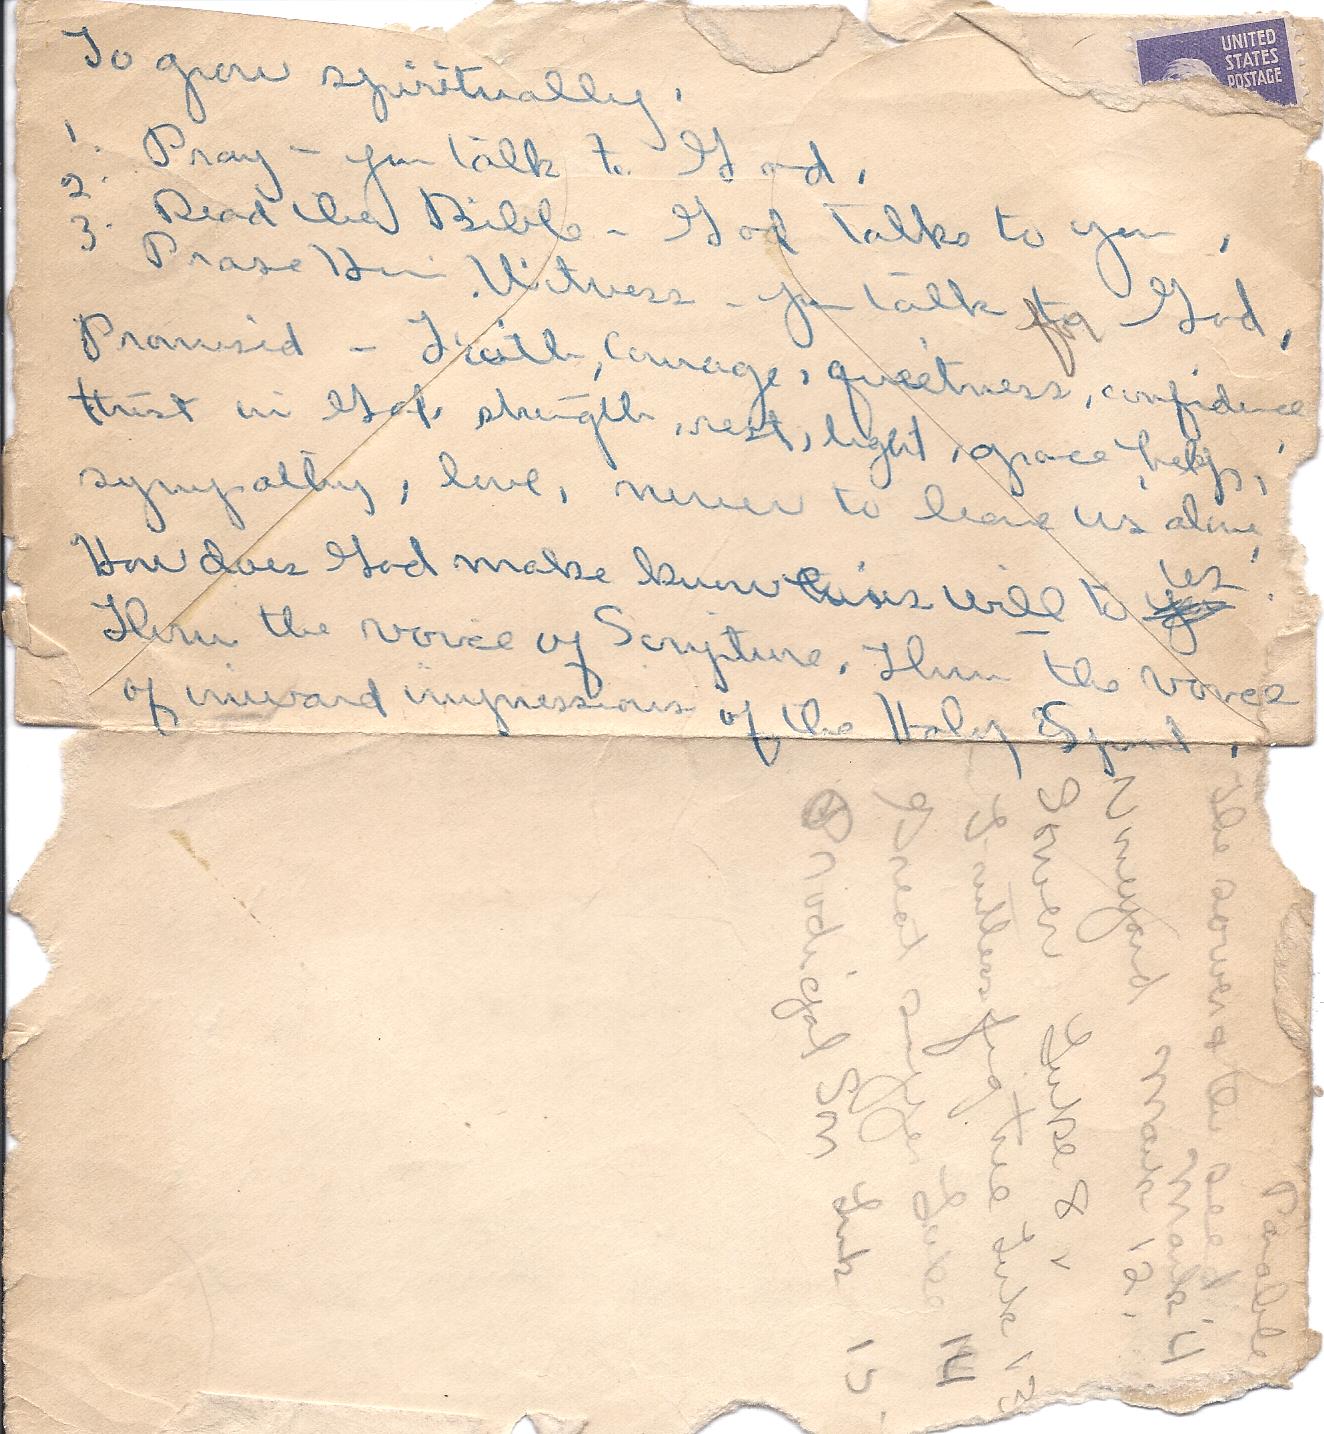 UNITED
STATES
POSTAGE
To grow spiritually,
1. Pray – you talk to God,
2. Read the Bible – God talks to you,
3. Prase Him Witness – you talk for God,
Promised – Faith, courage, quietness, confidence
trust in God, strength, rest, light, grace, help,
sympathy, love, never to leave us alone,
How does God make known his will to us.
Thru the voice of Scripture, Thru the voice
of inward impressions of the Holy Spirit,
Parable
The sower & the seed
Mark 4
Vineyard Mark 12.
Sower Luke 8
Fruitless fig tree Luk 13
Great supper Luke 14
Prodigal Son Luk 15.